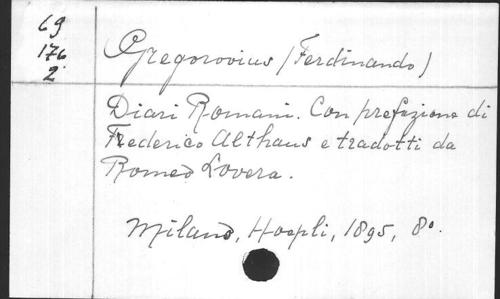 69
176
2
Gregorovius (Ferdinando)
Diari Romani. Con prefazione di
Frederico Althaus e tradotti da
Romeo Lovera.
Milano, Hoepli, 1895, 8º.